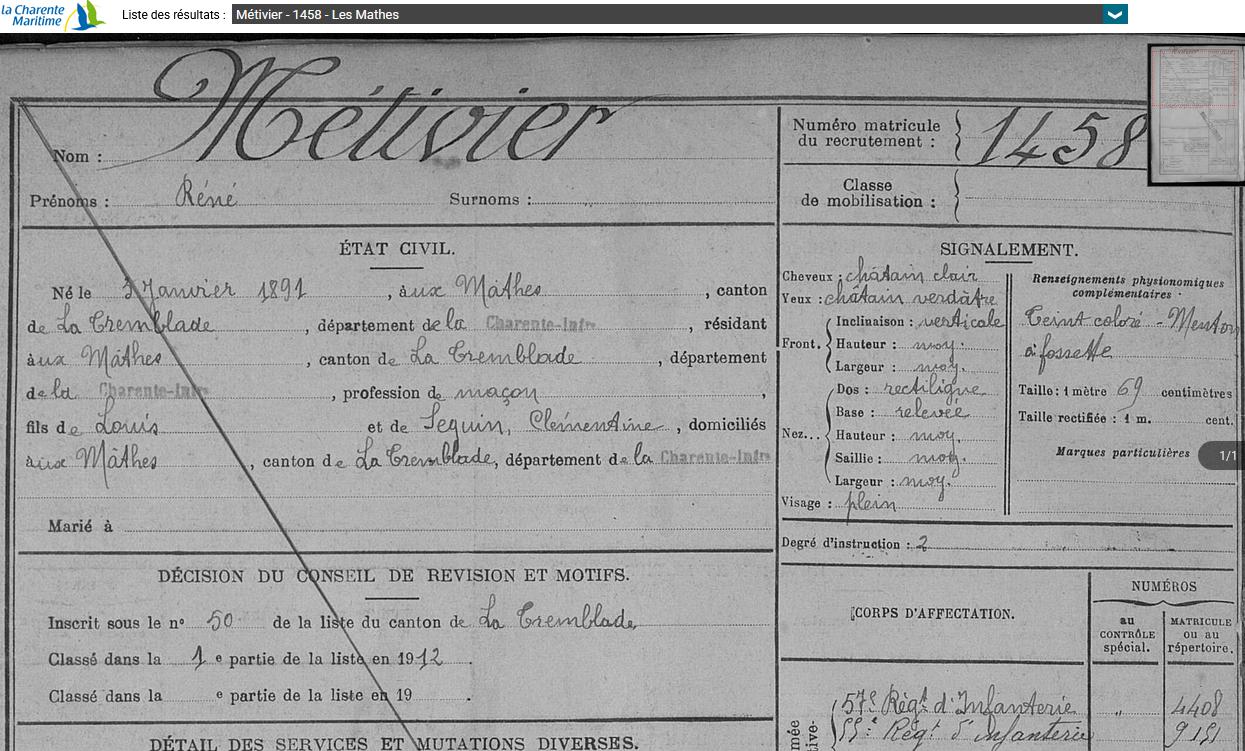 la Charente
Maritime
Liste des résultats : Métivier - 1458 - Les Mathes
Nom : Métivier
Prénoms : Réné Surnoms :
Numéro matricule
du recrutement : 1458
Classe
de mobilisation :
ÉTAT CIVIL.
Né le 3 Janvier 1891, aux Mathes, canton
de La Tremblade, département de la Charente-Infre, résidant
aux Mâthes, canton de La Tremblade, département
de la Charente-Infre, profession de maçon,
fils de Louis et de Seguin, Clémentine, domiciliés
aux Mâthes, canton de La Tremblade, département de la Charente-Infre
Marié à
SIGNALEMENT.
Cheveux : châtain clair
Yeux : châtain verdâtre
Front. Inclinaison : verticale
Hauteur : moy.
Largeur : moy.
Nez... Dos : rectiligne
Base : relevée
Hauteur : moy.
Saillie : moy.
Largeur : moy.
Visage : plein
Renseignements physionomiques
complémentaires :
Teint coloré - Menton
à fossette
Taille : 1 mètre 69 centimètres
Taille rectifiée : 1 m. cent.
Marques particulières
1/1
Degré d'instruction : 2
DÉCISION DU CONSEIL DE REVISION ET MOTIFS.
Inscrit sous le nº 50 de la liste du canton de La Tremblade
Classé dans la 1 e partie de la liste en 1912.
Classé dans la e partie de la liste en 19 .
DÉTAIL DES SERVICES ET MUTATIONS DIVERSES.
CORPS D'AFFECTATION.
NUMÉROS
au
CONTRÔLE
spécial.
MATRICULE
ou au
répertoire.
57e Régt d'Infanterie " 4408
Régt d'Infanterie